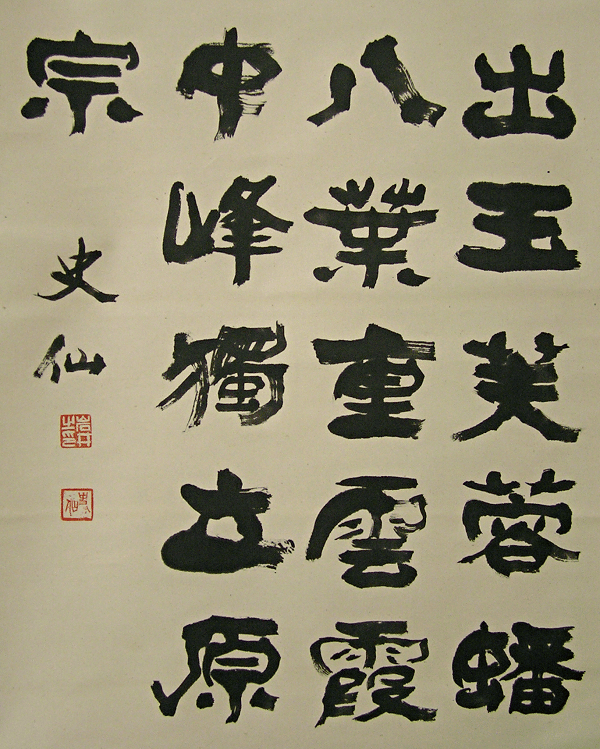 出玉芙蓉蟠
八葉重雲霞
中峰獨立原
宗
史仙